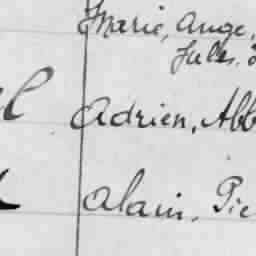 Marie, Ange,
Jules
Adrien, Abb
Alain, Pie